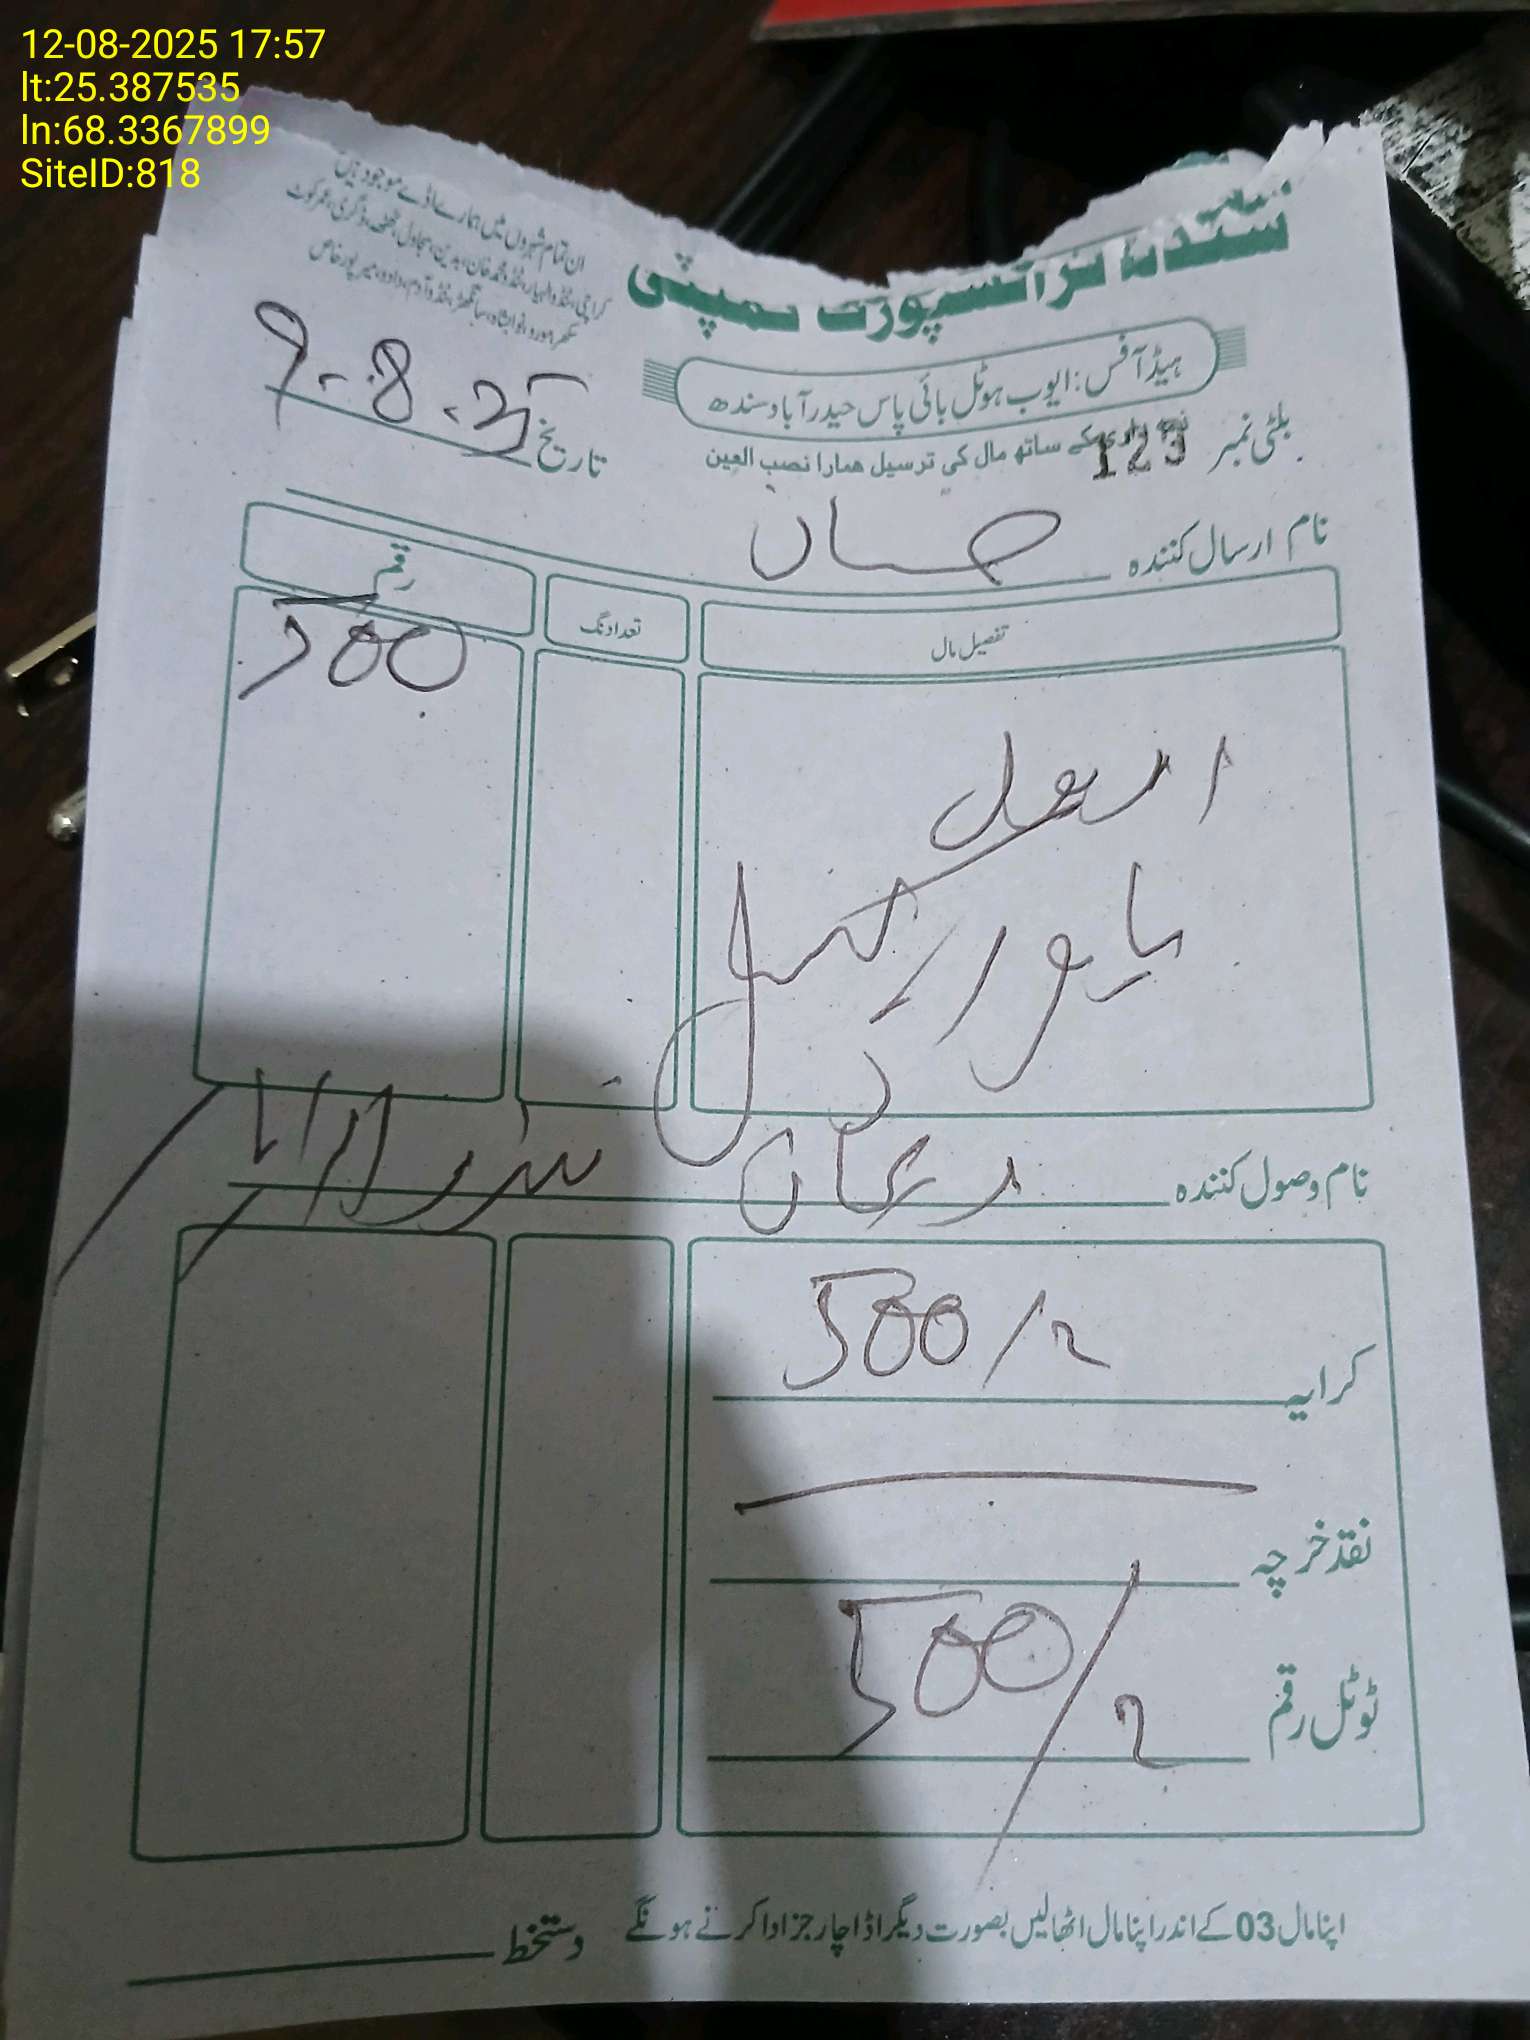 12-08-2025 17:57
lt:25.387535
ln:68.3367899
SiteID:818
سندھ ٹرانسپورٹ کمپنی
ان تمام شہروں میں ہمارے اڈے موجود ہیں
کراچی، ٹنڈوالہیار، ٹنڈو محمد خان، بدین، سجاول، ٹھٹھہ، ڈگری، عمرکوٹ
سکھر، مورو، نوابشاہ، سانگھڑ، ٹنڈوآدم، دادو، میرپورخاص
ہیڈ آفس: ایوب ہوٹل بائی پاس حیدرآباد سندھ
ذمہ داری کے ساتھ مال کی ترسیل ھمارا نصب العین
بلٹی نمبر 123
تاریخ 9-8-25
نام ارسال کنندہ حسان
تفصیل مال تعداد نگ رقم
500
نام وصول کنندہ
کرایہ 500/
نقد خرچہ
ٹوٹل رقم 500/
اپنا مال 03 کے اندر اپنا مال اٹھالیں بصورت دیگر اڈا چارجز ادا کرنے ہونگے
دستخط